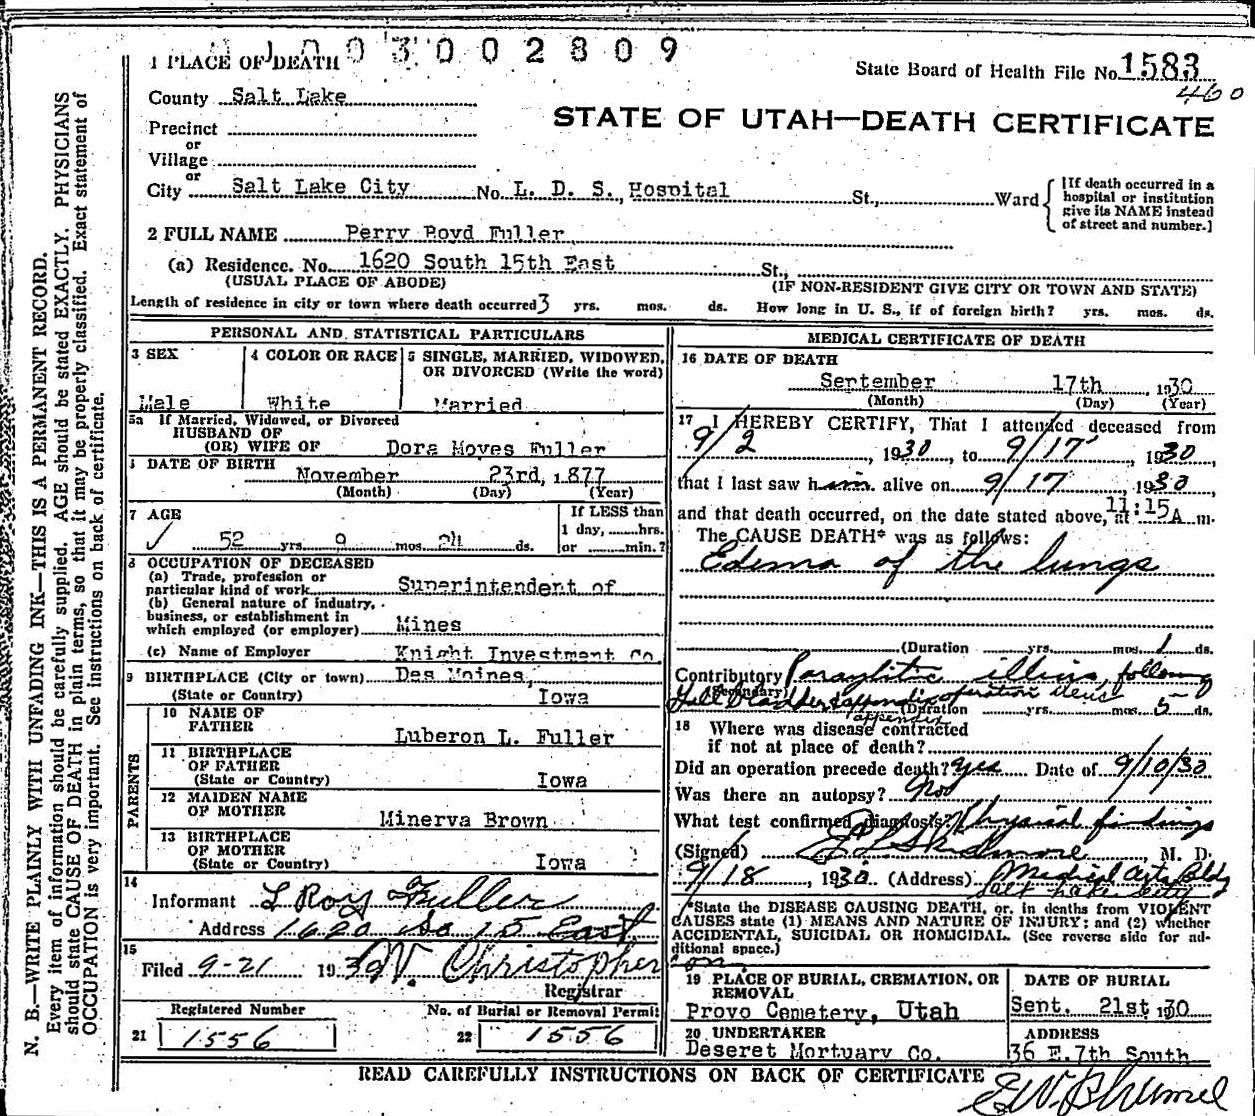 003002809
1 PLACE OF DEATH
State Board of Health File No. 1583
460
County Salt Lake
STATE OF UTAH—DEATH CERTIFICATE
Precinct
or
Village
or
City Salt Lake City No. L. D. S. Hospital St., Ward
[If death occurred in a
hospital or institution
give its NAME instead
of street and number.]
2 FULL NAME Perry Boyd Fuller
(a) Residence. No. 1620 South 15th East St.,
(USUAL PLACE OF ABODE) (IF NON-RESIDENT GIVE CITY OR TOWN AND STATE)
Length of residence in city or town where death occurred 3 yrs. mos. ds. How long in U. S., if of foreign birth? yrs. mos. ds.
PERSONAL AND STATISTICAL PARTICULARS
3 SEX
Male
4 COLOR OR RACE
White
5 SINGLE, MARRIED, WIDOWED,
OR DIVORCED (Write the word)
Married
5a If Married, Widowed, or Divorced
HUSBAND OF
(OR) WIFE OF Dora Moyes Fuller
DATE OF BIRTH
November 23rd, 1877
(Month) (Day) (Year)
7 AGE
52 yrs. 9 mos. 24 ds.
If LESS than
1 day, hrs.
or min.?
8 OCCUPATION OF DECEASED
(a) Trade, profession or
particular kind of work Superintendent of
(b) General nature of industry,
business, or establishment in
which employed (or employer) Mines
(c) Name of Employer Knight Investment Co.
9 BIRTHPLACE (City or town) Des Moines,
(State or Country) Iowa
PARENTS
10 NAME OF
FATHER Luberon L. Fuller
11 BIRTHPLACE
OF FATHER
(State or Country) Iowa
12 MAIDEN NAME
OF MOTHER Minerva Brown
13 BIRTHPLACE
OF MOTHER
(State or Country) Iowa
14
Informant L Roy Fuller
Address 1620 So 15 East
15
Filed 9-21 1930 W. Christopherson
Registrar
Registered Number
21 1556
No. of Burial or Removal Permit
22 1556
MEDICAL CERTIFICATE OF DEATH
16 DATE OF DEATH
September 17th 1930
(Month) (Day) (Year)
17 I HEREBY CERTIFY, That I attended deceased from
9/2, 1930, to 9/17, 1930,
that I last saw him alive on 9/17 1930
and that death occurred, on the date stated above, at 11:15 A m.
The CAUSE DEATH* was as follows:
Edema of the lungs
(Duration yrs. mos. 1 ds.
Contributory Paraylitic illius, following
(Secondary)
Gall bladder & appendix operation
appendix
(Duration yrs. mos. 5 ds.
18 Where was disease contracted
if not at place of death?
Did an operation precede death? yes Date of 9/10/30
Was there an autopsy? No
What test confirmed diagnosis? Physical findings
(Signed) Skidmore M. D.
9/18, 1930 (Address) Medical Arts Bldg
Salt Lake City
*State the DISEASE CAUSING DEATH, or, in deaths from VIOLENT
CAUSES state (1) MEANS AND NATURE OF INJURY; and (2) whether
ACCIDENTAL, SUICIDAL OR HOMICIDAL. (See reverse side for ad-
ditional space.)
19 PLACE OF BURIAL, CREMATION, OR
REMOVAL
Provo Cemetery, Utah
DATE OF BURIAL
Sept. 21st 1930
20 UNDERTAKER
Deseret Mortuary Co.
ADDRESS
36 E. 7th South
READ CAREFULLY INSTRUCTIONS ON BACK OF CERTIFICATE
N. B.—WRITE PLAINLY WITH UNFADING INK—THIS IS A PERMANENT RECORD.
Every item of information should be carefully supplied. AGE should be stated EXACTLY. PHYSICIANS
should state CAUSE OF DEATH in plain terms, so that it may be properly classified. Exact statement of
OCCUPATION is very important. See instructions on back of certificate.